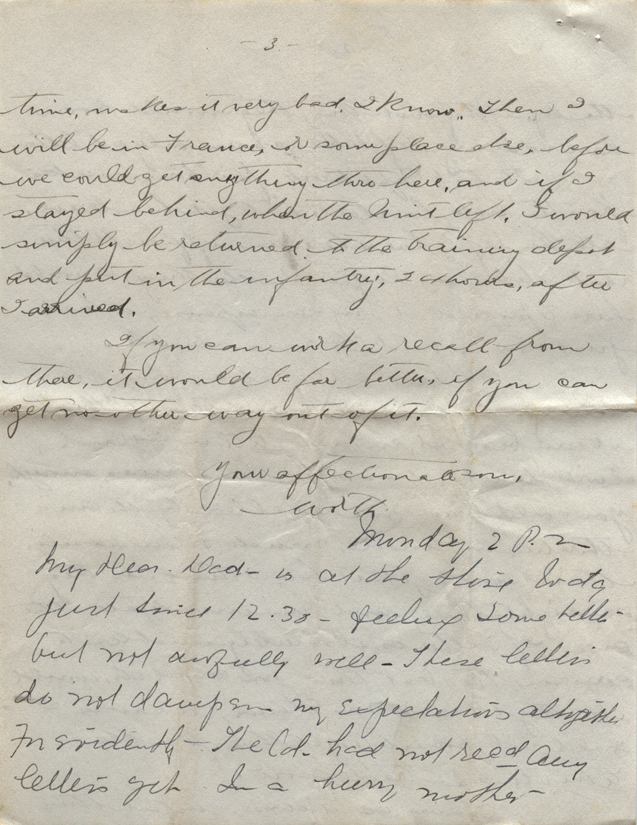 - 3 -
time, makes it very bad. I know. Then I
will be in France, or some place else, before
we could get anything thro here, and if I
stayed behind, when the Unit left, I would
simply be returned to the training depot
and put in the infantry, 24 hours, after
I arrived.
If you can work a recall from
there, it would be far better, if you can
get no other way out of it.
Your affectionate son,
Monday 2 P.M
My Dear. Dad - is at the Store today
just since 12.30 - feeling some better
but not awfully well - These letters
do not dampen my expectations altogether
for evidently - The Col. had not recd any
letters yet In a hurry mother